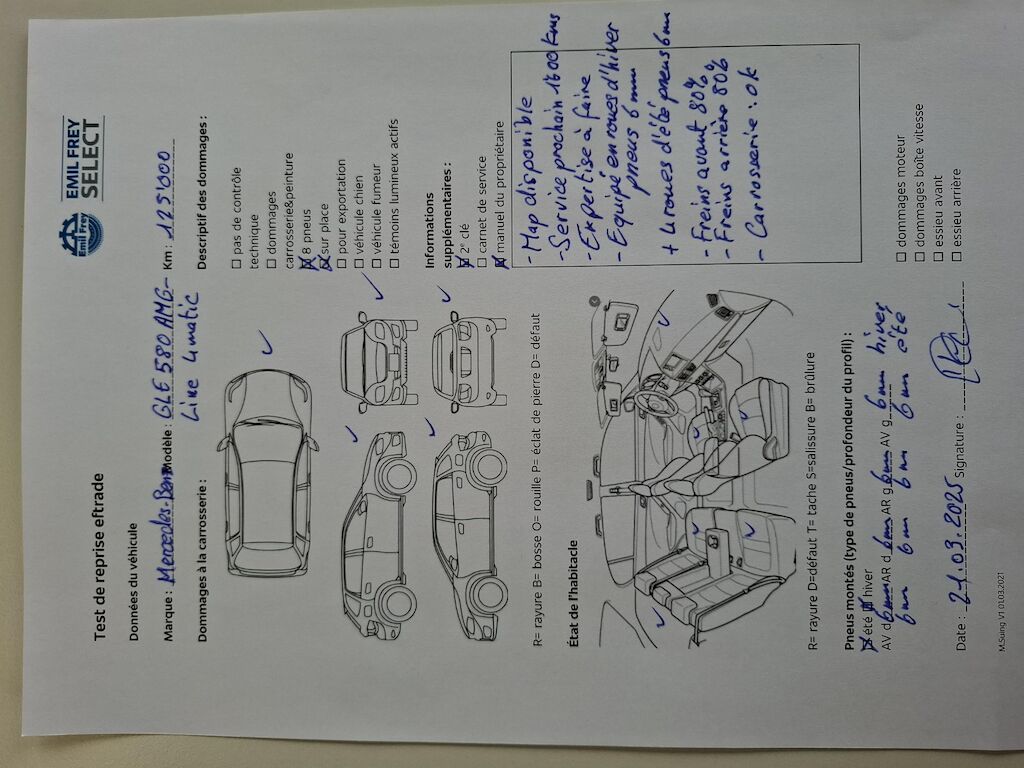 Emil Frey
EMIL FREY
SELECT
Test de reprise eftrade
Données du véhicule
Marque : Mercedes-Benz Modèle : GLE 580 AMG- Km : 125'000
Line 4matic
Dommages à la carrosserie :
Descriptif des dommages :
☐ pas de contrôle
technique
☐ dommages
carrosserie&peinture
☒ 8 pneus
☒ sur place
☐ pour exportation
☐ véhicule chien
☐ véhicule fumeur
☐ témoins lumineux actifs
Informations
supplémentaires :
☒ 2° clé
☐ carnet de service
☒ manuel du propriétaire
- Map disponible
- Service prochain 1600 kms
- Expertise à faire
- Equipé en roues d'hiver
pneus 6 mm
+ 4 roues d'été pneus 6 mm
- Freins avant 80%
- Freins arrière 80%
- Carrosserie : ok
R= rayure B= bosse O= rouille P= éclat de pierre D= défaut
État de l'habitacle
R= rayure D=défaut T= tache S=salissure B= brûlure
Pneus montés (type de pneus/profondeur du profil) :
☒ été ☒ hiver
AV d 6mm AR d 6mm AR g 6mm AV g 6mm hiver
6mm 6mm 6mm 6mm été
☐ dommages moteur
☐ dommages boîte vitesse
☐ essieu avant
☐ essieu arrière
Date : 21.03.2025 Signature :
M.Suing V1 01.03.2021